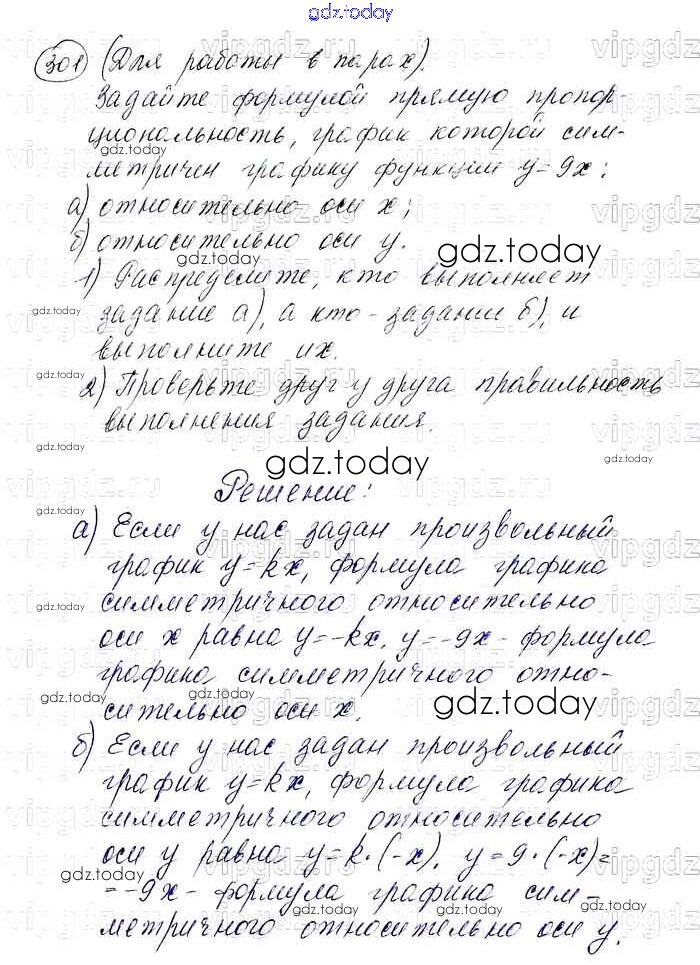 gdz.today
301 (Для работы в парах).
Задайте формулой прямую пропор-
циональность, график которой сим-
метричен графику функции y=9x:
а) относительно оси x;
б) относительно оси y.
gdz.today
1) Распределите, кто выполняет
задание а), а кто - задание б), и
выполните их.
2) Проверьте друг у друга правильность
выполнения задания.
gdz.today
Решение:
а) Если у нас задан произвольный
график y=kx, формула графика
симметричного относительно
оси x равна y=-kx, y=-9x - формула
графика симметричного отно-
сительно оси x.
gdz.today
б) Если у нас задан произвольный
график y=kx, формула графика
симметричного относительно
оси y равна y=k·(-x), y=9·(-x)=
=-9x - формула графика сим-
gdz.today
метричного относительно оси y.